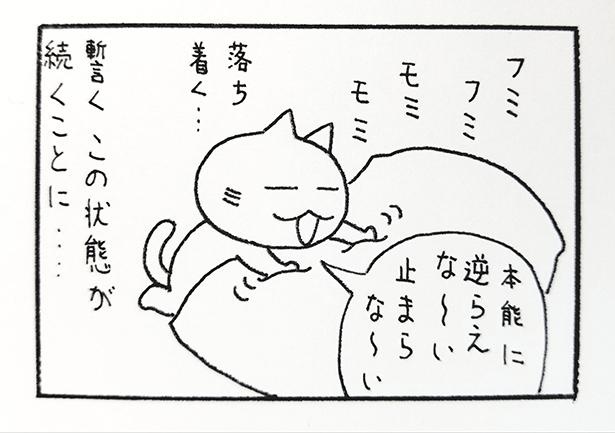 フミ
フミ
モミ
モミ
本能に
逆らえ
な〜い
止まら
な〜い
落ち
着く…
暫く この状態が
続くことに……